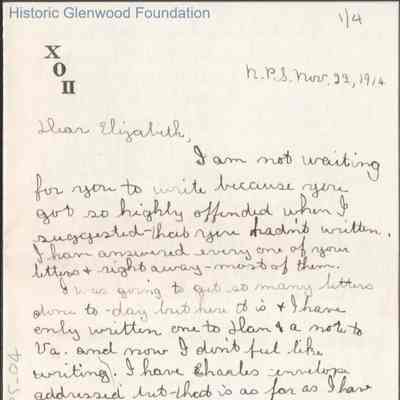 Historic Glenwood Foundation
1/4
X
O
II
N.P.S. Nov. 22, 1914
Dear Elizabeth,
I am not waiting
for you to write because you
got so highly offended when I
suggested that you hadn't written.
I have answered every one of your
letters & right away - most of them.
I was going to get so many letters
done to-day but here it is & I have
only written one to Han & a note to
Va. and now I don't feel like
writing. I have Charles' envelope
addressed but that is as far as I have